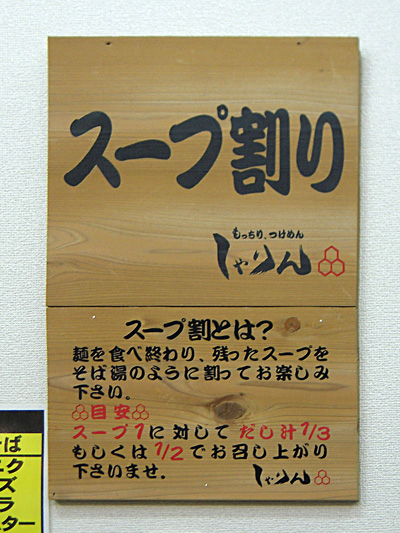 スープ割り
もっちり、つけめん
しゃりん
スープ割とは?
麺を食べ終わり、残ったスープを
そば湯のように割ってお楽しみ
下さい。
目安
スープ1に対してだし汁1/3
もしくは1/2でお召し上がり
下さいませ。
しゃりん
ば
ク
ズ
ラ
ター